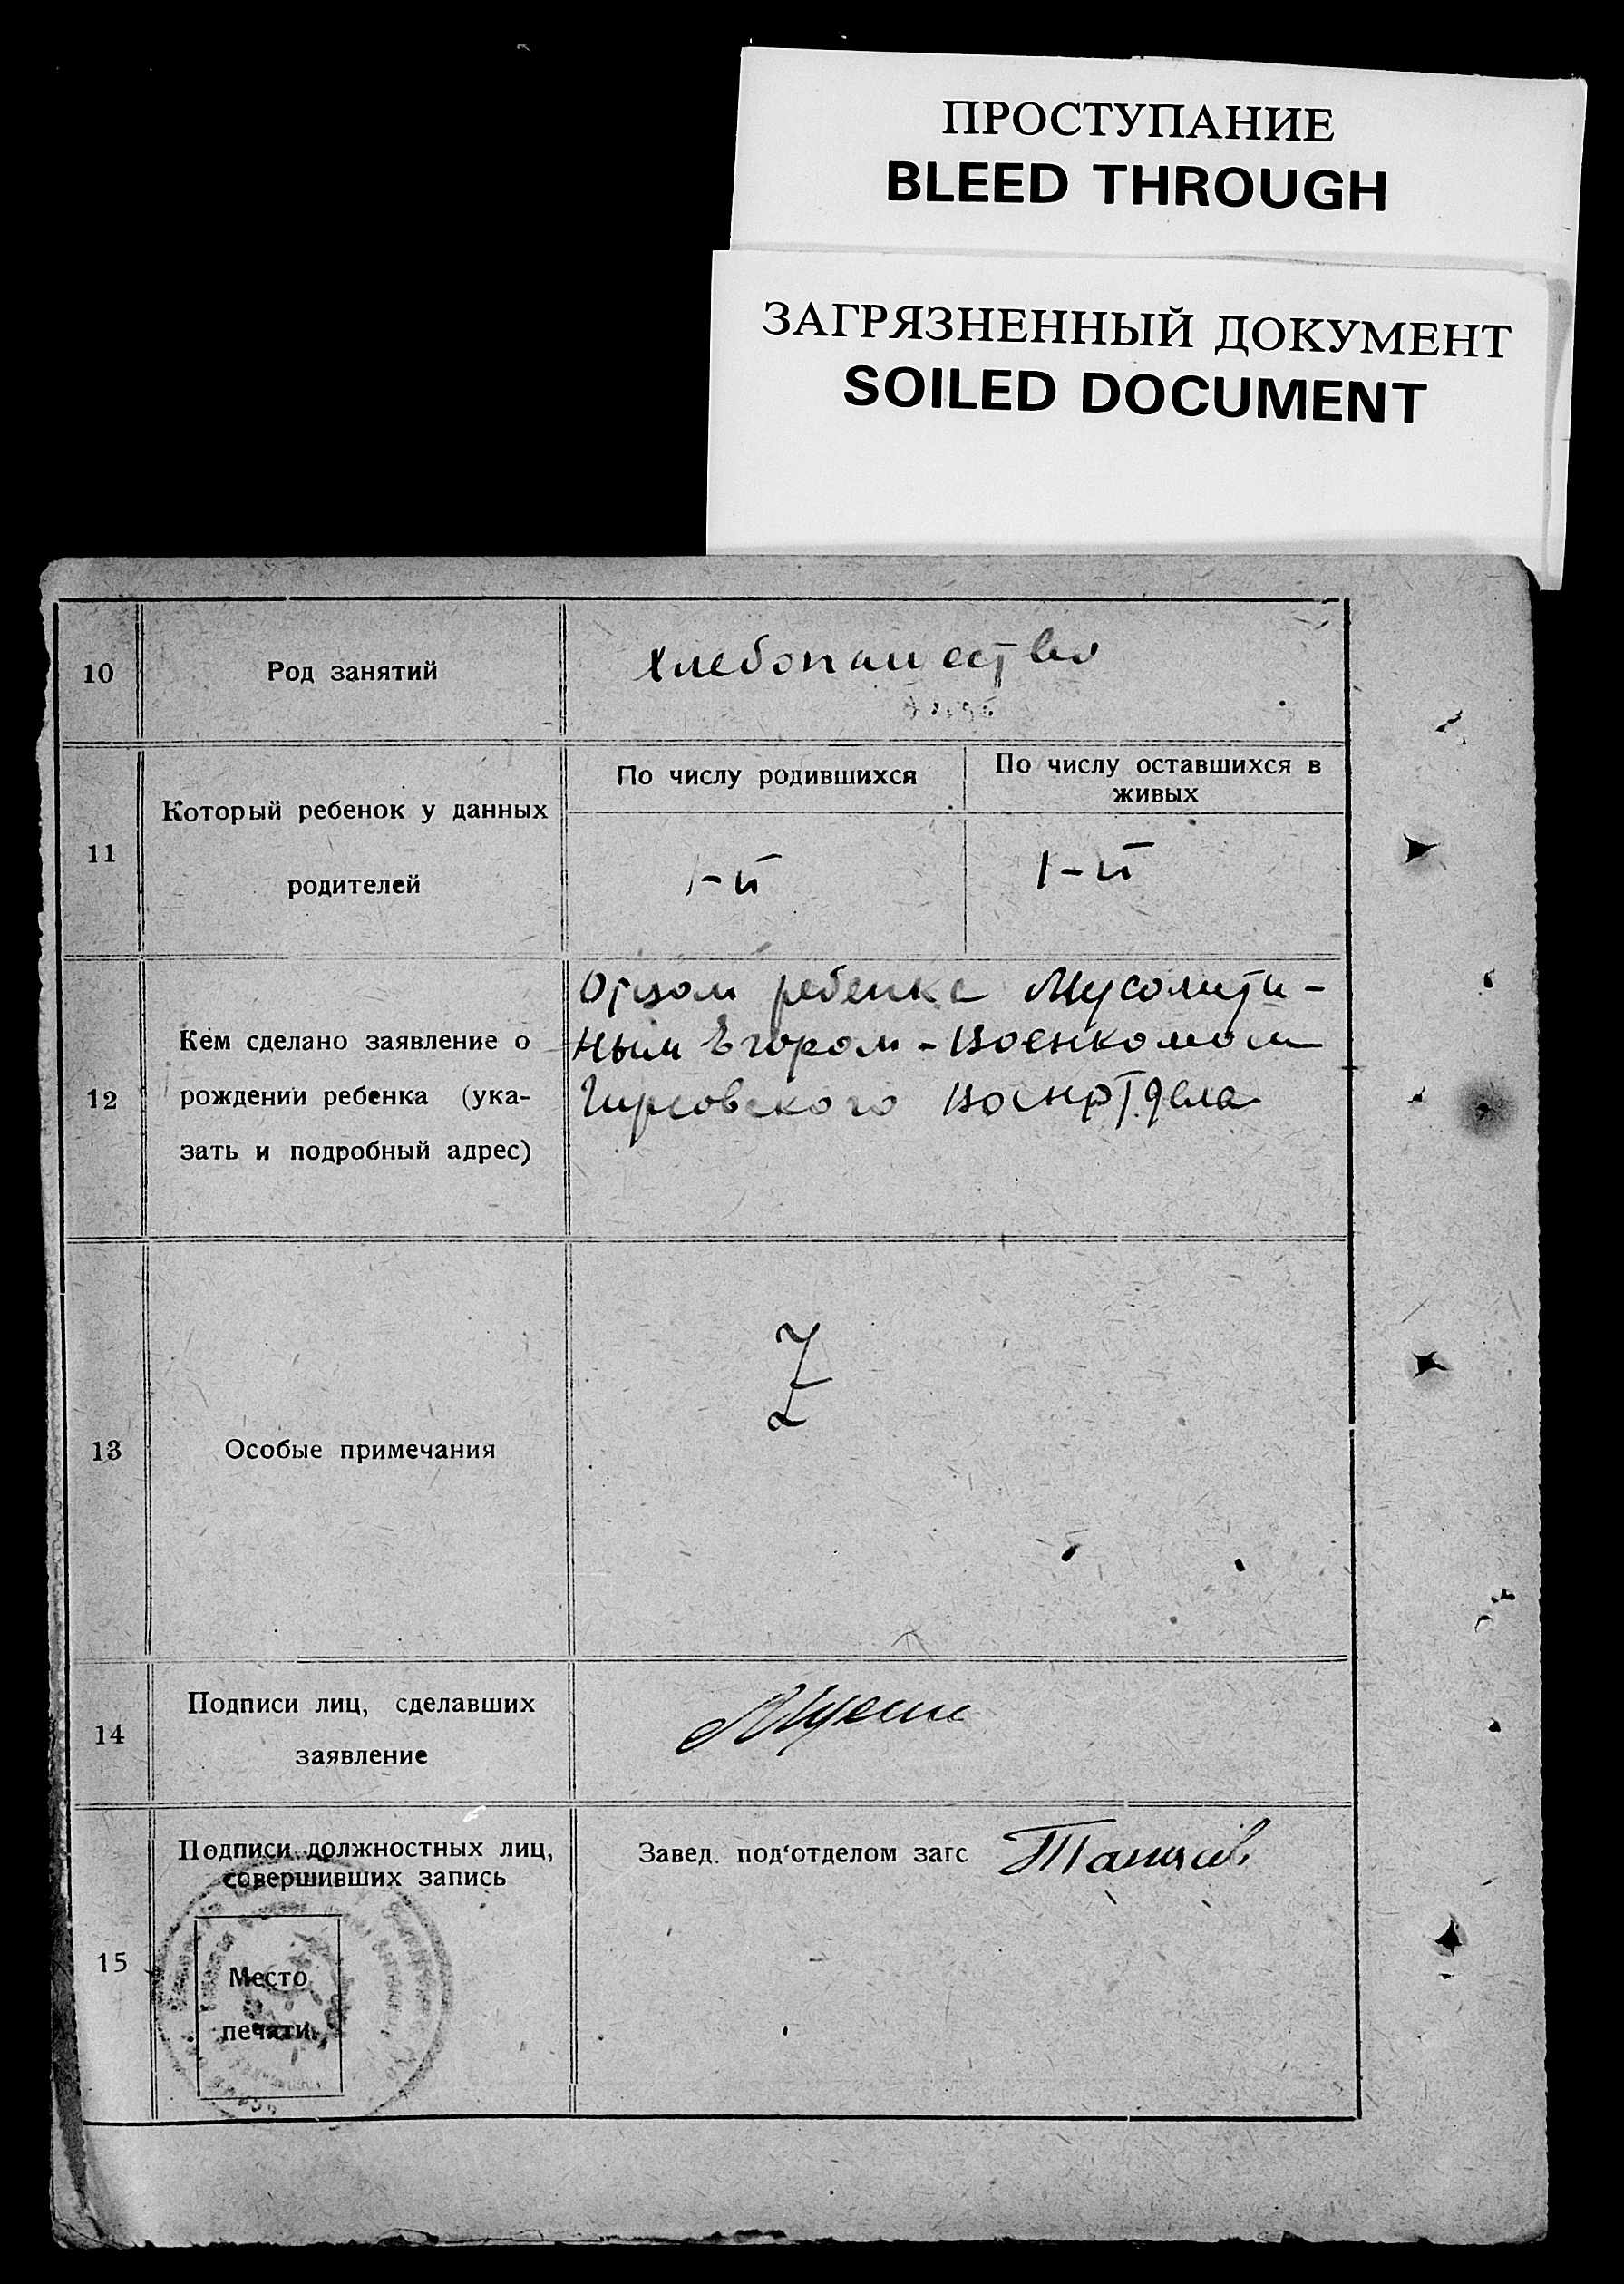 ПРОСТУПАНИЕ
BLEED THROUGH
ЗАГРЯЗНЕННЫЙ ДОКУМЕНТ
SOILED DOCUMENT
10
Род занятий
Хлебопашество
11
Который ребенок у данных
родителей
По числу родившихся
По числу оставшихся в
живых
1-й
1-й
12
Кем сделано заявление о
рождении ребенка (ука-
зать и подробный адрес)
Отцом ребенка
ным Егором - Военкомом
13
Особые примечания
Z
14
Подписи лиц, сделавших
заявление
15
Подписи должностных лиц,
совершивших запись
Место
печати.
Завед. под‘отделом загс